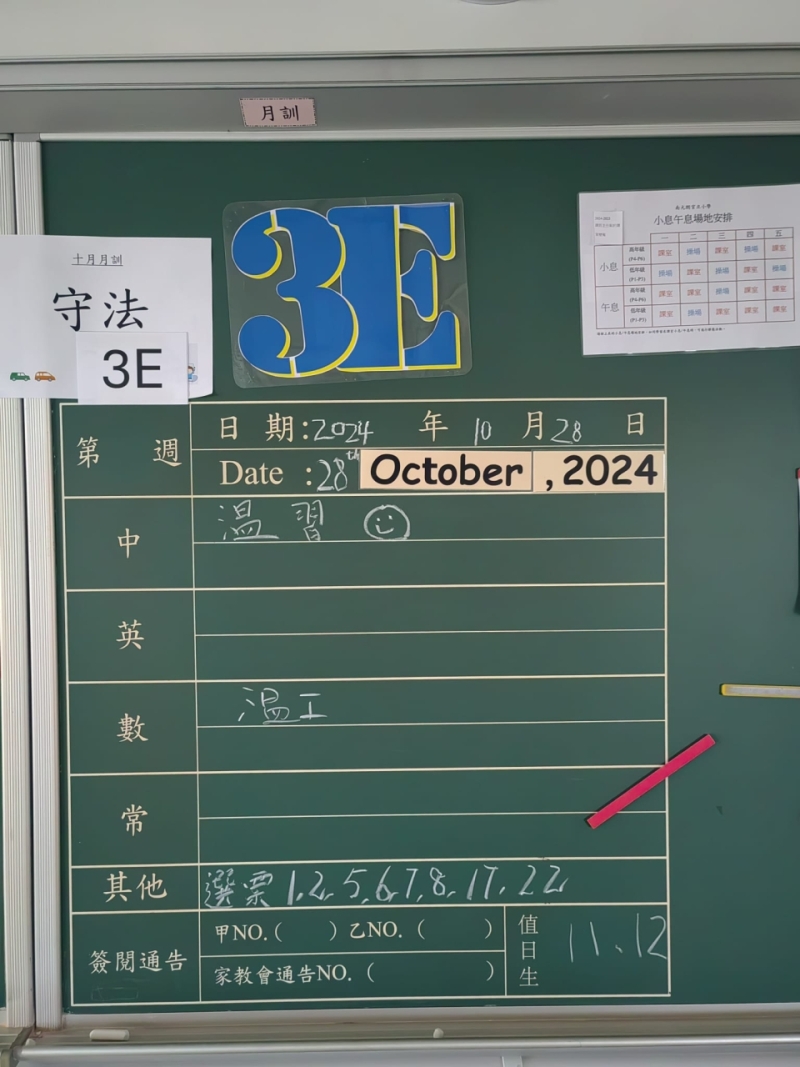 月訓
3E
十月月訓
守法
3E
小息午息場地安排
一 二 三 四 五
小息 高年級 (P4-P6) 課室 操場 課室 操場 課室
低年級 (P1-P3) 操場 課室 操場 課室 操場
午息 高年級 (P4-P6) 課室 課室 操場 課室 課室
低年級 (P1-P3) 操場 操場 課室 操場 課室
第 週 日 期:2024 年 10 月 28 日
Date :28th October , 2024
中 溫習
英
數 溫工
常
其他 選票 1, 2, 5, 6, 7, 8, 17, 22,
簽閱通告 甲NO.( ) 乙NO. ( )
家教會通告NO. ( )
值日生 11、12